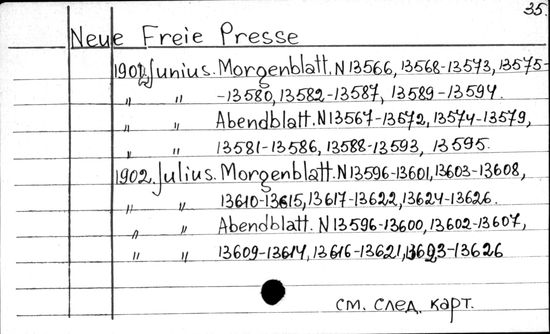 35.
Neue Freie Presse
1902 Junius. Morgenblatt. N 13566, 13568-13573, 13575-
" " -13580, 13582-13587, 13589-13594.
" " Abendblatt. N 13567-13572, 13574-13579,
13581-13586, 13588-13593, 13595.
1902. Julius. Morgenblatt. N 13596-13601, 13603-13608,
" " 13610-13615, 13617-13622, 13624-13626.
" " Abendblatt. N 13596-13600, 13602-13607,
" " 13609-13614, 13616-13621, 13623-13626
см. след. карт.